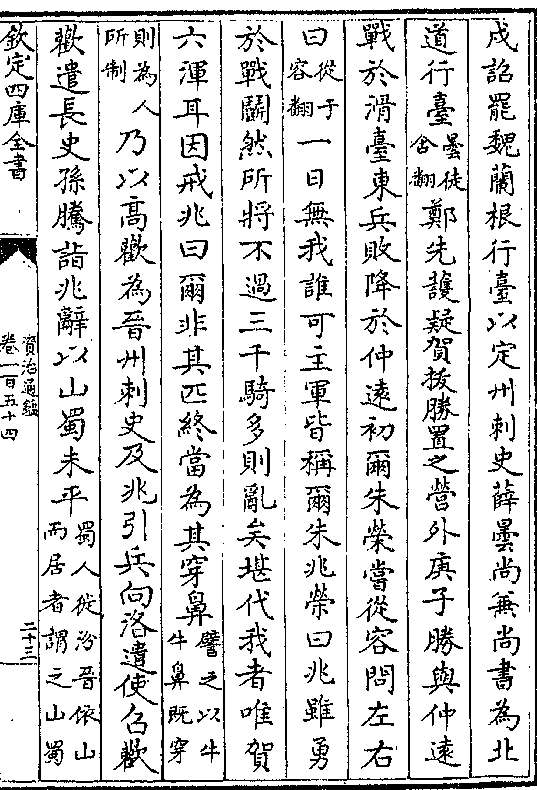 戌詔罷魏蘭根行臺以定州刺史薛曇尚兼尚書為北
道行臺曇徒含翻鄭先護疑賀拔勝置之營外庚子勝與仲遠
戰於滑臺東兵敗降於仲遠初爾朱榮嘗從容問左右
曰從千容翻一日無我誰可主軍皆稱爾朱兆榮曰兆雖勇
於戰鬭然所將不過三千騎多則亂矣堪代我者唯賀
六渾耳因戒兆曰爾非其匹終當為其穿鼻譬之以牛牛鼻既穿
則為人所制乃以高歡為晉州刺史及兆引兵向洛遣使召歡
歡遣長史孫騰詣兆辭以山蜀未平蜀人徙汾晉依山而居者謂之山蜀
欽定四庫全書
資治通鑑
卷一百五十四
二十三